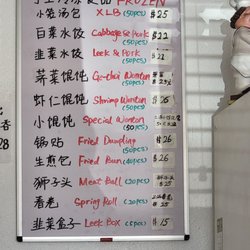 冷冻 FROZEN
小笼汤包 XLB (50pcs) $25
白菜水饺 Cabbage & Pork (50pcs) $22
韭菜水饺 Leek & Pork (50pcs)
荠菜馄饨 Ge-chai Wonton (50pcs) $
虾仁馄饨 Shrimp Wonton (50pcs) $
小馄饨 Special Wonton (50pcs)
锅贴 Fried Dumpling (50pcs) $26
生煎包 Fried Bun (40pcs) $26
狮子头 Meat Ball (20pcs) $25
春卷 Spring Roll (20pcs) $25
韭菜盒子 Leek Box (5pcs) $15
28